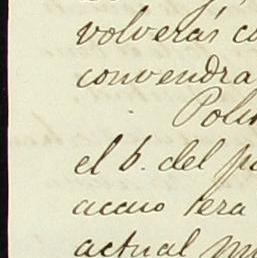 volverás co
convendra
Polu
el 6. del pa
acaso sera
actual mu